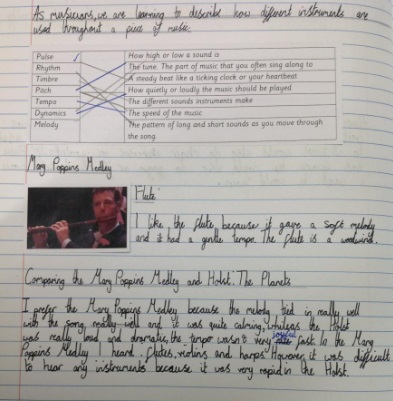 As musicians, we are learning to describe how different instruments are
used throughout a piece of music.
Pulse
How high or low a sound is
Rhythm
The tune. The part of music that you often sing along to
Timbre
A steady beat like a ticking clock or your heartbeat
Pitch
How quietly or loudly the music should be played
Tempo
The different sounds instruments make
Dynamics
The speed of the music
Melody
The pattern of long and short sounds as you move through
the song.
Mary Poppins Medley
Flute
I like the flute because it gave a soft melody
and it had a gentle tempo. The flute is a woodwind.
Comparing the Mary Poppins Medley and Holst. The Planets
I prefer the Mary Poppins Medley because the melody tied in really well
with the song really well and it was quite calming, whereas the Holst
was really loud and dramatic, the tempo wasn't very fast. In the Mary
Poppins Medley I heard flutes, violins and harps. However, it was difficult
to hear any instruments because it was very rapid in the Holst.